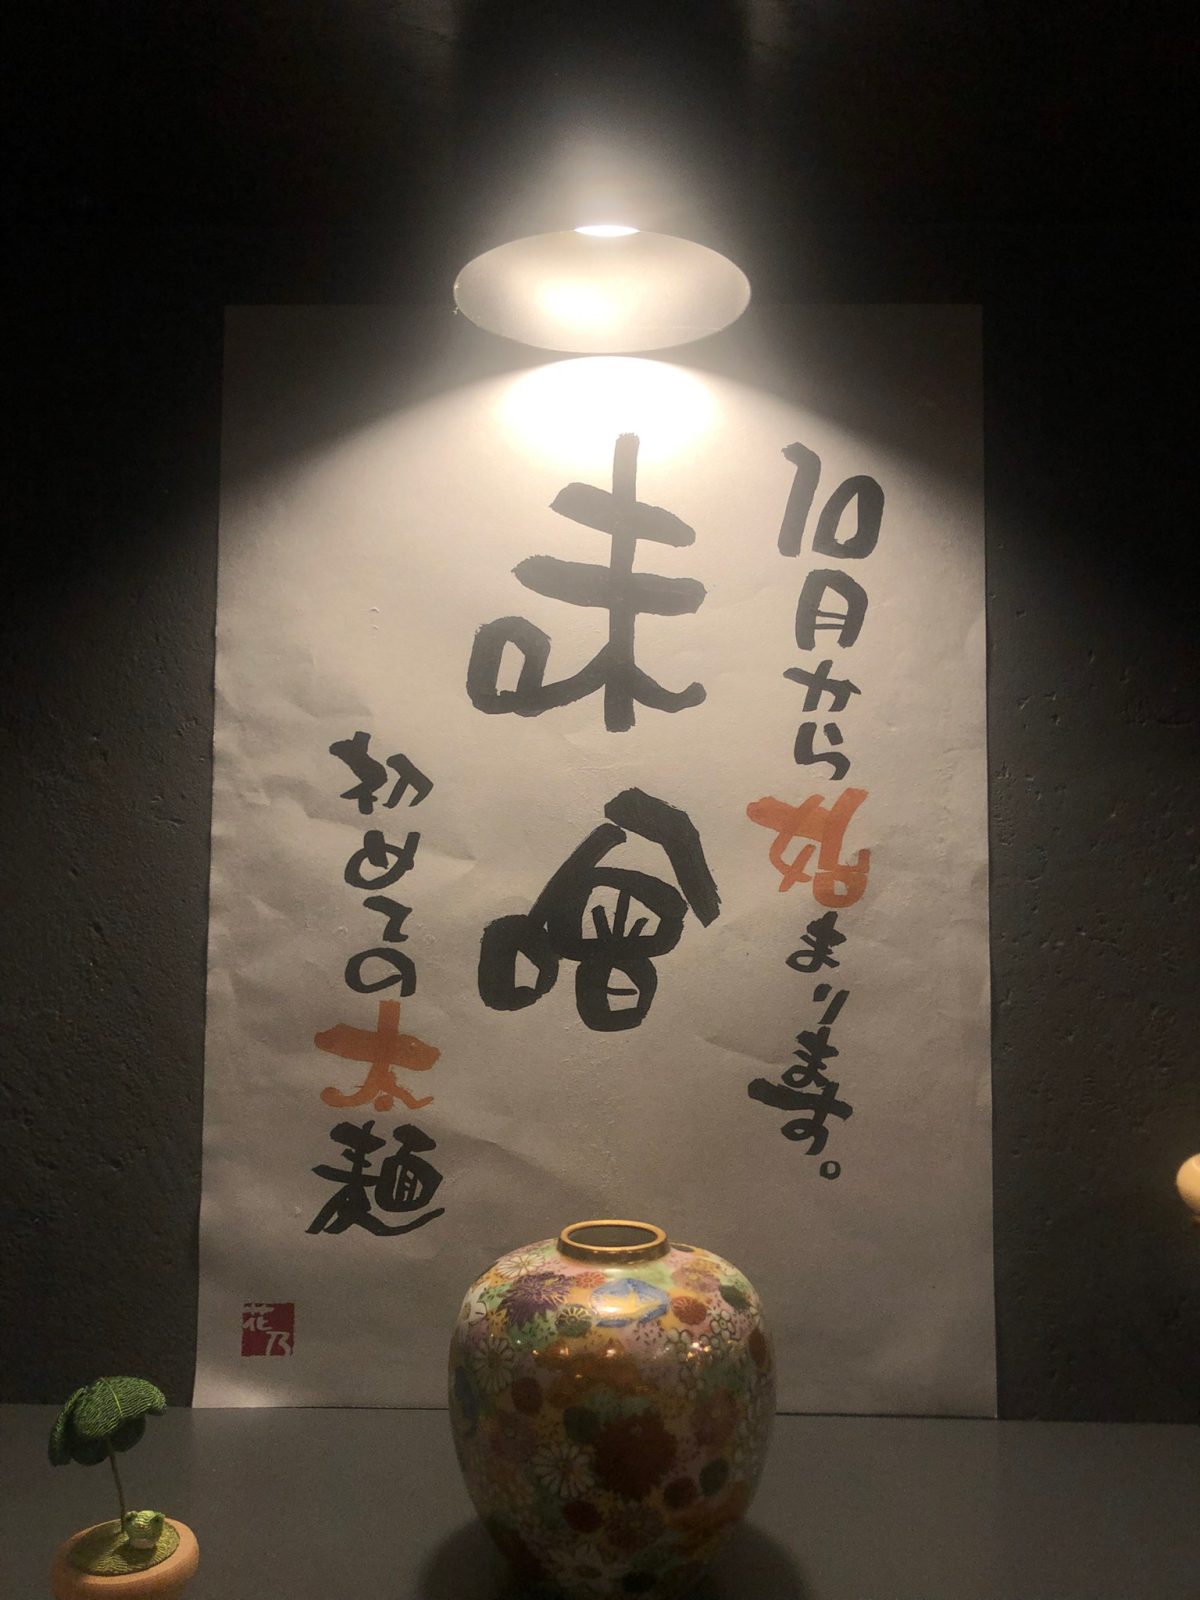 10月から始まります。
味噌
初めての太麺
花乃